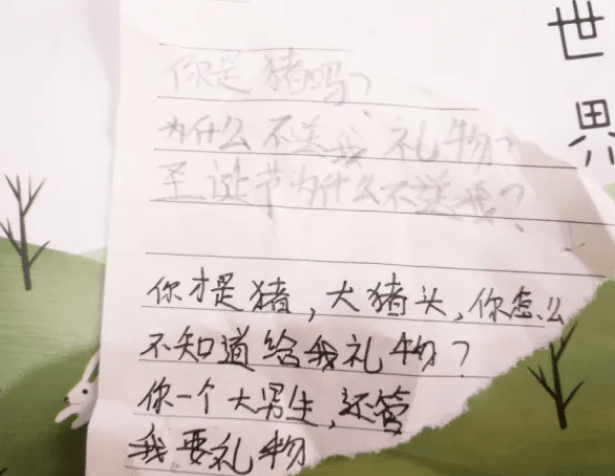 世
界
你是猪吗？
为什么不送我礼物？
圣诞节为什么不送我？
你才是猪，大猪头，你怎么
不知道给我礼物？
你一个大男生，还管
我要礼物